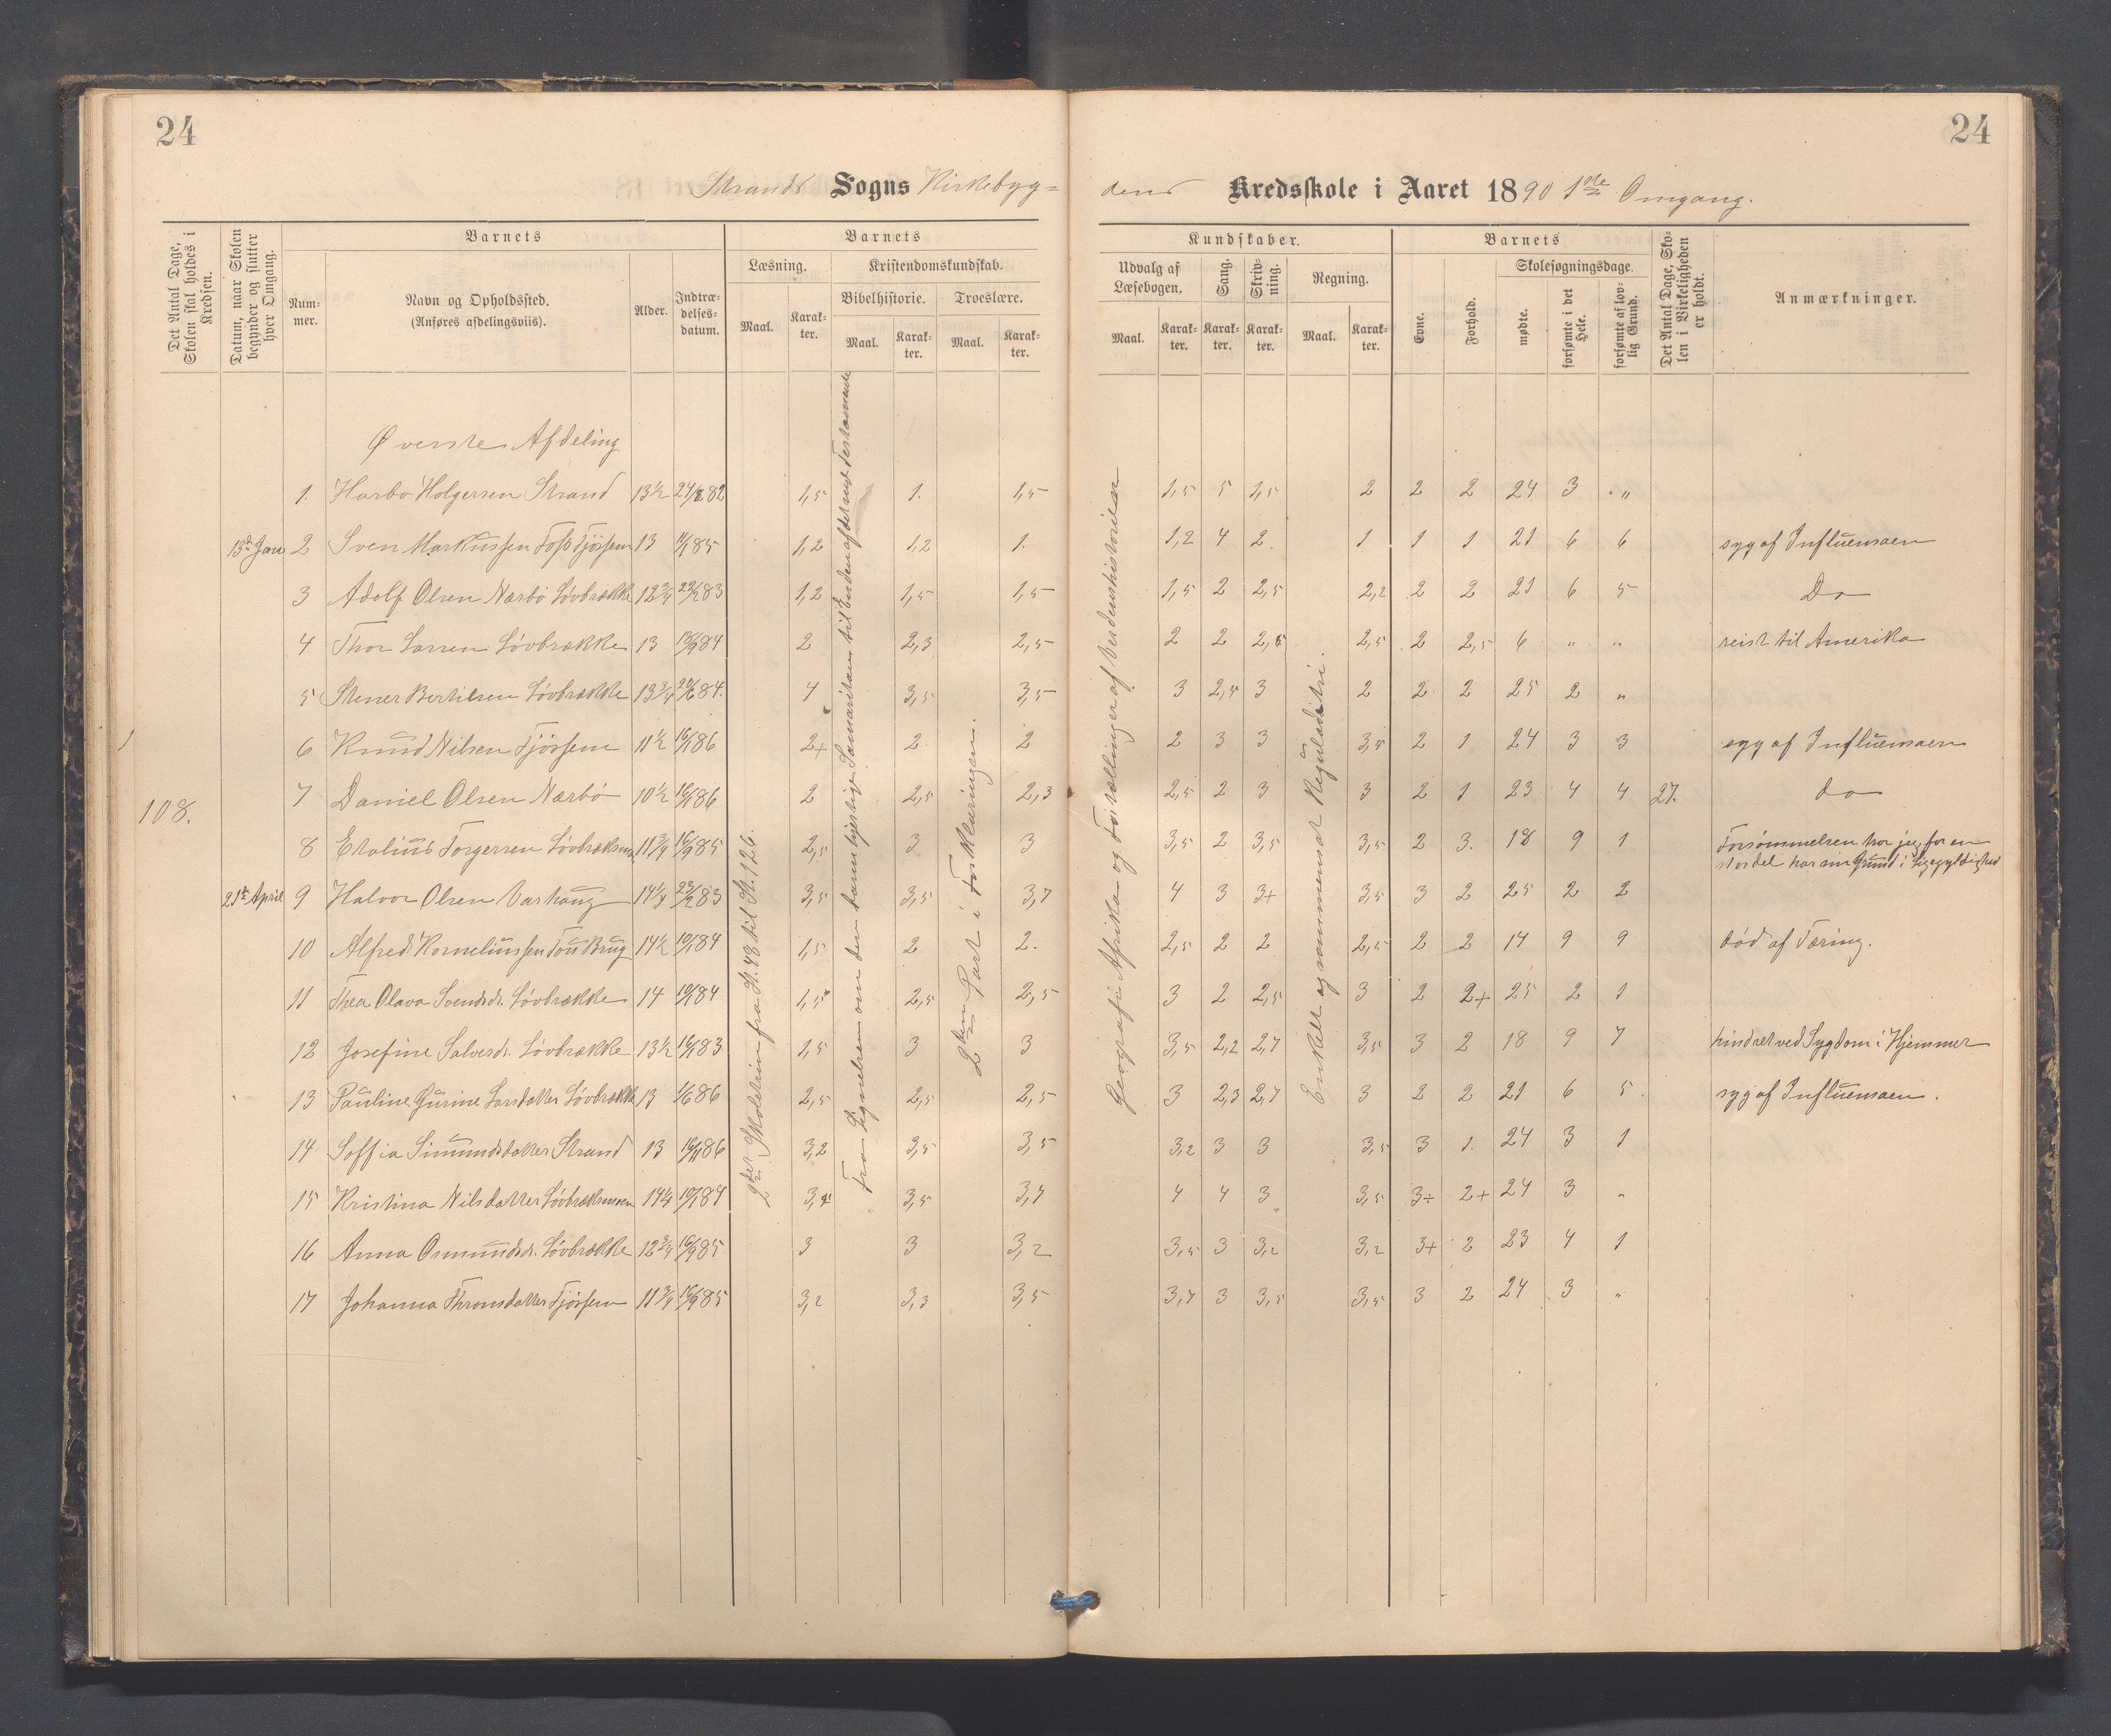 24
24
Strands Sogns Kirkebyg=
dens Kredsskole i Aaret 1890 1ste Omgang.
Det Antal Dage, Skolen skal holdes i Kredsen.
Datum, naar Skolen begynder og slutter hver Omgang.
Barnets
Nummer.
Navn og Opholdssted.
(Anføres afdelingsviis).
Alder.
Indtrædelsesdatum.
Barnets
Læsning.
Maal.
Karakter.
Kristendomskundskab.
Bibelhistorie.
Maal.
Karakter.
Troeslære.
Maal.
Karakter.
Kundskaber.
Udvalg af Læsebogen.
Maal.
Karakter.
Sang.
Karakter.
Skrivning.
Karakter.
Regning.
Maal.
Karakter.
Barnets
Evne.
Forhold.
Skolesøgningsdage.
mødte.
forsømte i det Hele.
forsømte af lovlig Grund.
Det Antal Dage, Skolen i Virkeligheden er holdt.
Anmærkninger.
Øverste Afdeling
108.
13de Jan
21de April
2den Part i Forklaringen.
Geografi: Afrika og Fortællinger af Verdenshistorien
Enkelt og sammensat Reguladetri.
27.
1. Harbo Holgersen Strand 13½ 1,5 1. 1,5 1,5 5 1,5 2 2 2 24 3 „
2 Sven Markussen Foss Tjössem 13 1,2 1,2 1. 1,2 4 2 1 1 1 21 6 6 syg af Influensaen
3 Adolf Olsen Nærbö Lövbrække 12¾ 1,2 1,5 1,5 1,5 2 2,5 2,2 2 2 21 6 5 Do
4 Thor Larsen Lövbrække 13 2 2,3 2,5 2 2 2,5 2 2,5 6 „ „ reist til Amerika
5 Stener Bertilsen Lövbrække 13¾ 4 3,5 3,5 3 2,5 3 2 2 2 25 2 „
6 Knud Nilsen Tjössem 11½ 16/1 86 2+ 2 2 2 3 3 3,5 2 1 24 3 3 syg af Influensaen
7 Daniel Olsen Nærbö 10½ 16/1 86 2 2,5 2,3 2,5 2 3 3 2 1 23 4 4 do
8 Torgersen 11¾ 16/9 85 2,5 3 3 3,5 2 3,5 3,5 2 3. 18 9 1 Forsömmelsen tror jeg for en
stor del har sin Grund i Ligegyldighed
9 Halvor Olsen Varhaug 14¼ 3,5 3,5 3,7 4 3 3+ 3,5 3 2 25 2 2
10 Alfred Korneliussen Tou Brug 14½ 10/1 84 1,5 2 2. 2,5 2 2 2,5 2 2 14 9 9 död af Tæring.
11 Thea Olava Svendsdr. Lövbrække 14 10/1 84 1,5 2,5 2,5 3 2 2,5 3 2 2+ 25 2 1
12 Josefine Salvesdr. Lövbrække 13½ 16/1 83 1,5 3 3 3,5 2,2 2,7 3,5 3 2 18 9 7 hindret ved Sygdom i Hjemmet
13 Pauline Gurine Larsdatter Lövbrække 13 1/6 86 2,5 2,5 2,5 3 2,3 2,7 3 2 2 21 6 5 syg af Influensaen.
14 Soffia Simundsdatter Strand 13 3,2 3,5 3,5 3,2 3 3 3,5 3 1. 24 3 1
15 Kristina Nilsdatter 14¼ 10/1 84 3,5 3,7 4 4 3 3,5 3÷ 2+ 24 3 „
16 Anna Osmundsdr. Lövbrække 12¾ 16/9 85 3 3 3,2 3,5 3 3,2 3,2 3+ 2 23 4 1
17 Johanna Thronsdatter Tjössem 11¾ 16/9 85 3,2 3,3 3,5 3,7 3 3,5 3,5 3 2 24 3 „